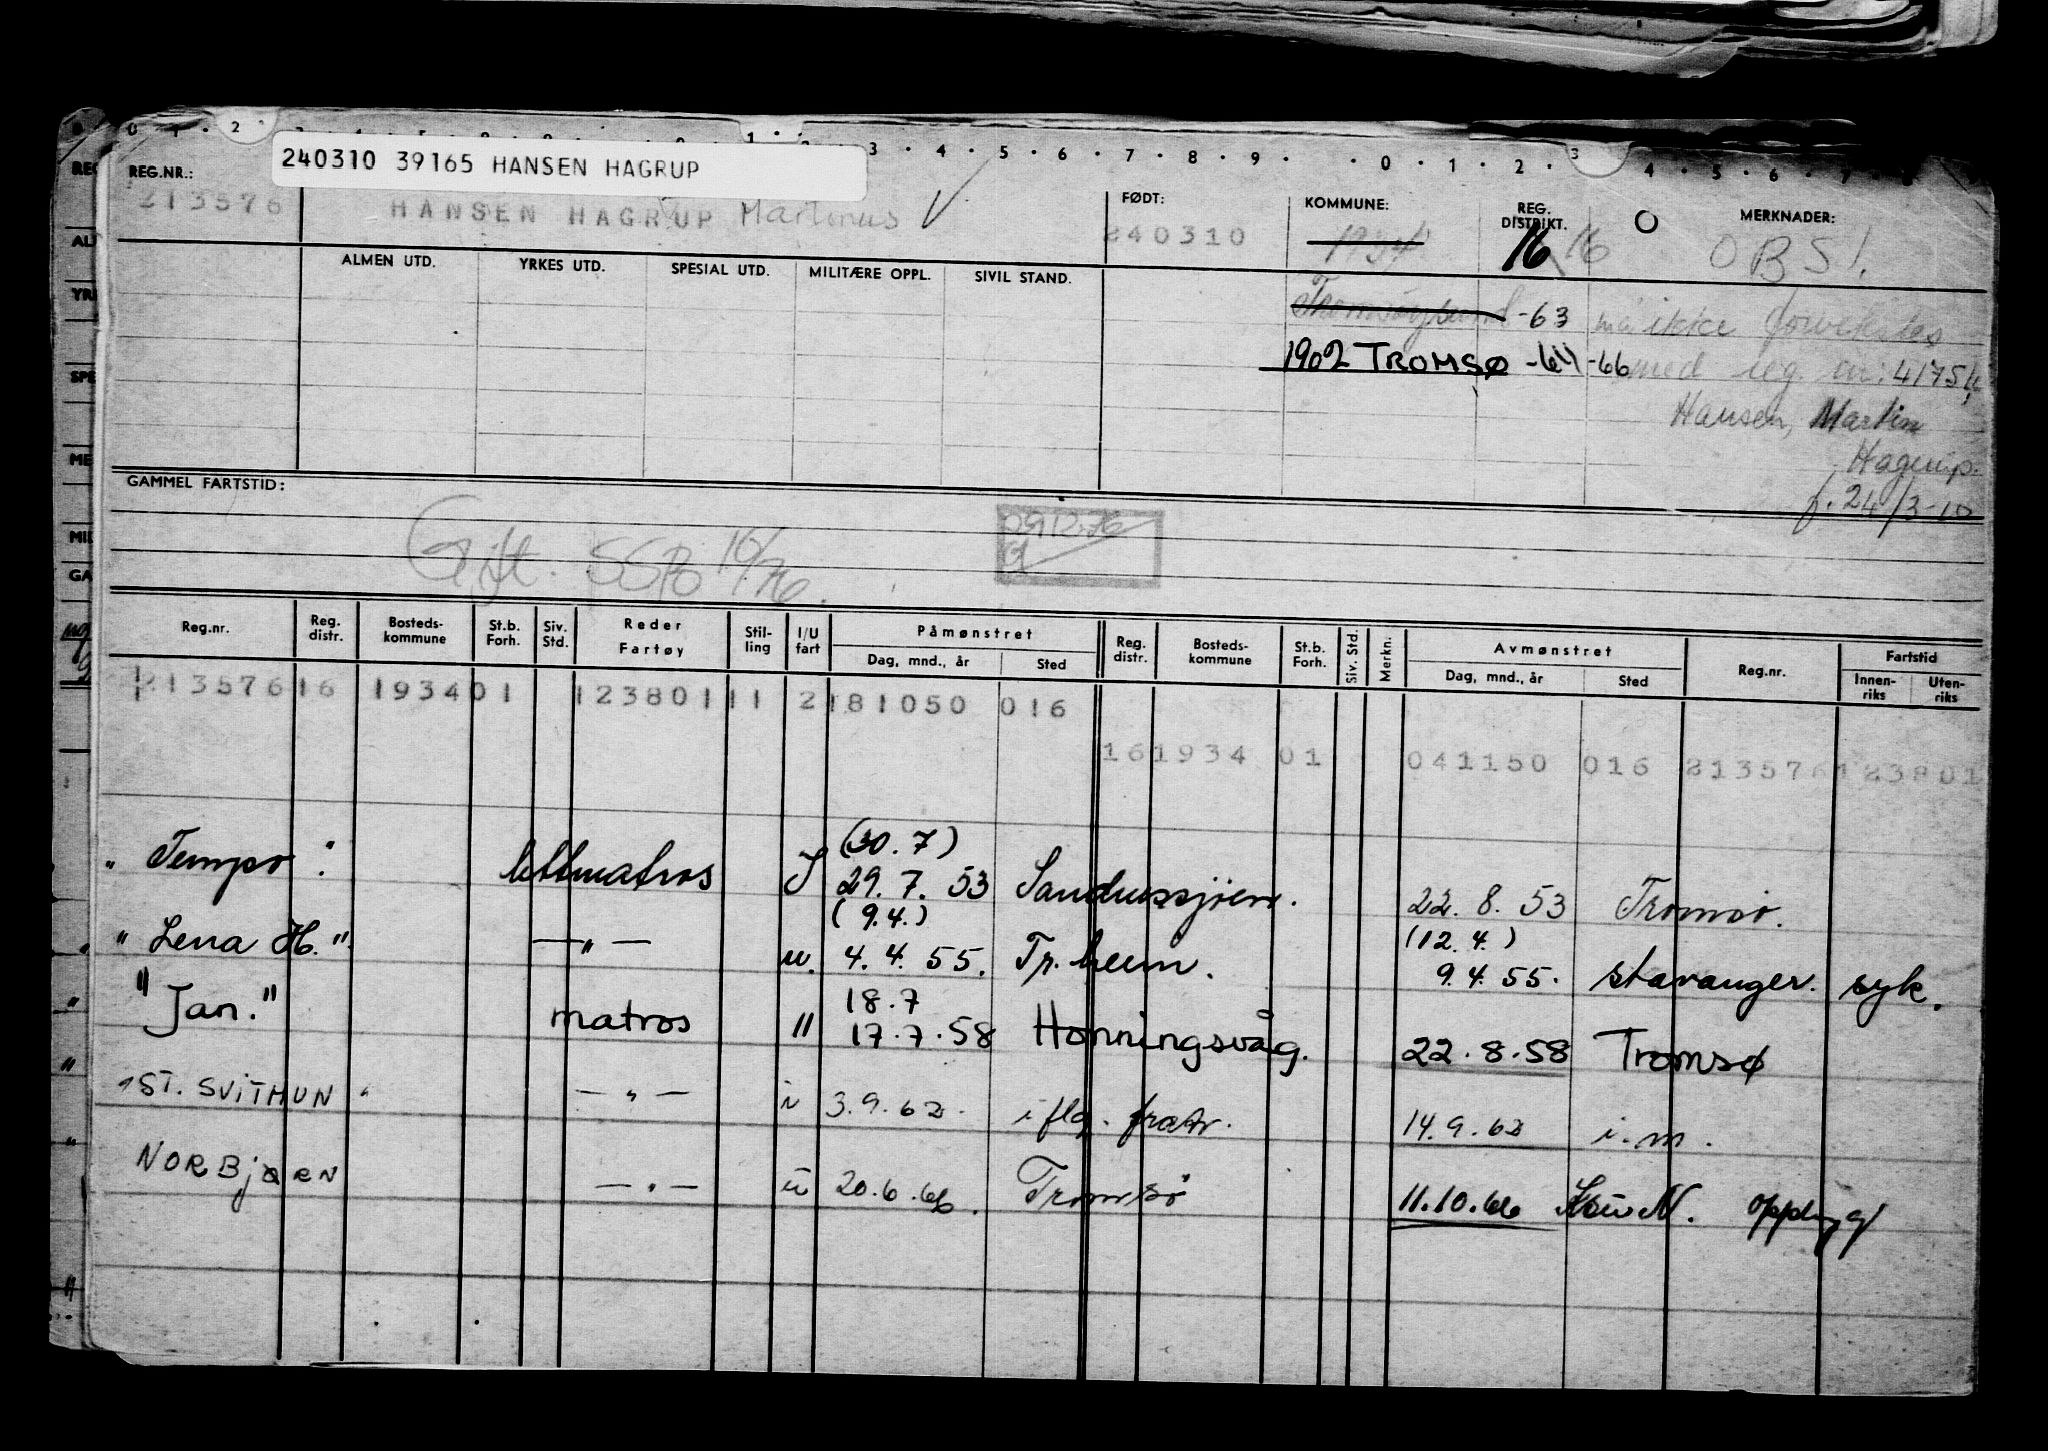 240310 39165 HANSEN HAGRUP
REG.NR.:
213576
HANSEN HAGRUP Martinus
FØDT:
240310
KOMMUNE:
1934
REG. DISTRIKT.
16 16
MERKNADER:
OBS!
ALMEN UTD.
YRKES UTD.
SPESIAL UTD.
MILITÆRE OPPL.
SIVIL STAND.
Tromsøysund -63
må ikke forveksles
1902 TROMSØ -64 -66
med reg. nr: 41754
Hansen, Martin
Hagerup.
f. 24/3-10
GAMMEL FARTSTID:
Gift. 10/76.
091276
Reg.nr. Reg. distr. Bosteds-kommune St.b. Forh. Siv. Std. Reder Fartøy Stil-ling I/U fart Påmønstret Dag, mnd., år Sted Reg. distr. Bosteds-kommune St.b. Forh. Siv. Std. Merkn. Avmønstret Dag, mnd., år Sted Reg.nr. Fartstid Innen-riks Uten-riks
213576 16 1934 01 123801 11 2 181050 016
16 1934 01 041150 016 213576 123801
(30.7)
"Tempo" lettmatros I 29.7.53 Sandnessjøen. 22.8.53 Tromsø.
(9.4.) (12.4.)
"Lena H." —"— u. 4.4.55. Tr.heim. 9.4.55. Stavanger. syk.
18.7
"Jan." matros " 17.7.58 Honningsvåg. 22.8.58 Tromsø
"ST. SVITHUN" —"— i 3.9.62. iflg. fratr. 14.9.62 i.m.
NORBJØRN —"— u 20.6.66. Tromsø 11.10.66